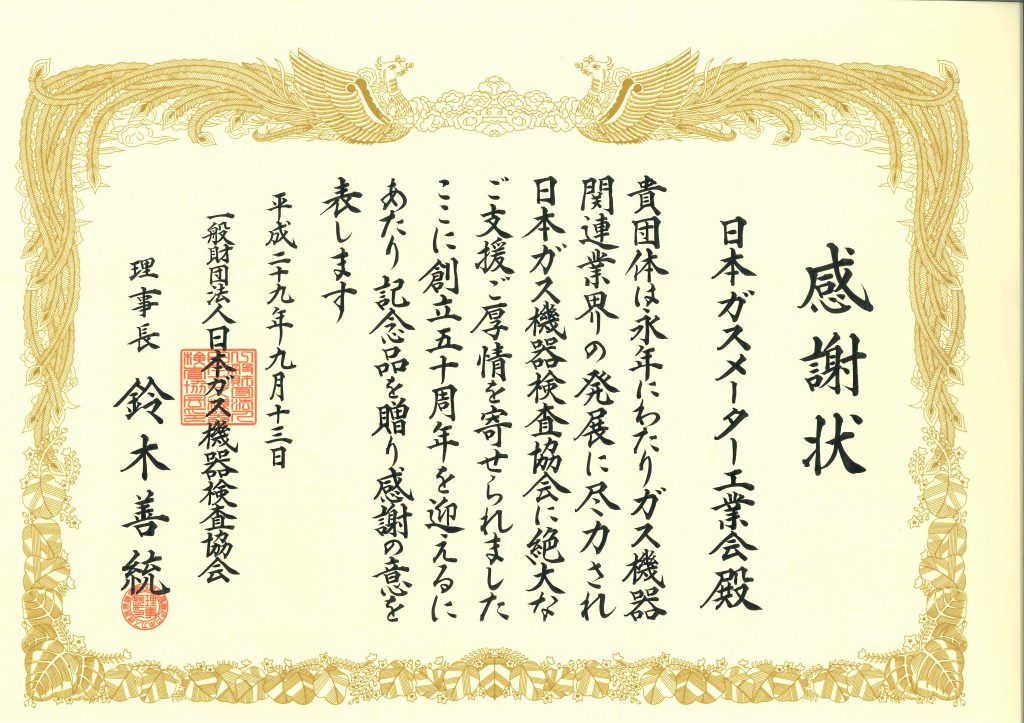 感謝状
日本ガスメーター工業会殿
貴団体は永年にわたりガス機器
関連業界の発展に尽力され
日本ガス機器検査協会に絶大な
ご支援ご厚情を寄せられました
ここに創立五十周年を迎えるに
あたり記念品を贈り感謝の意を
表します
平成二十九年九月十三日
一般財団法人日本ガス機器検査協会
理事長 鈴木善統